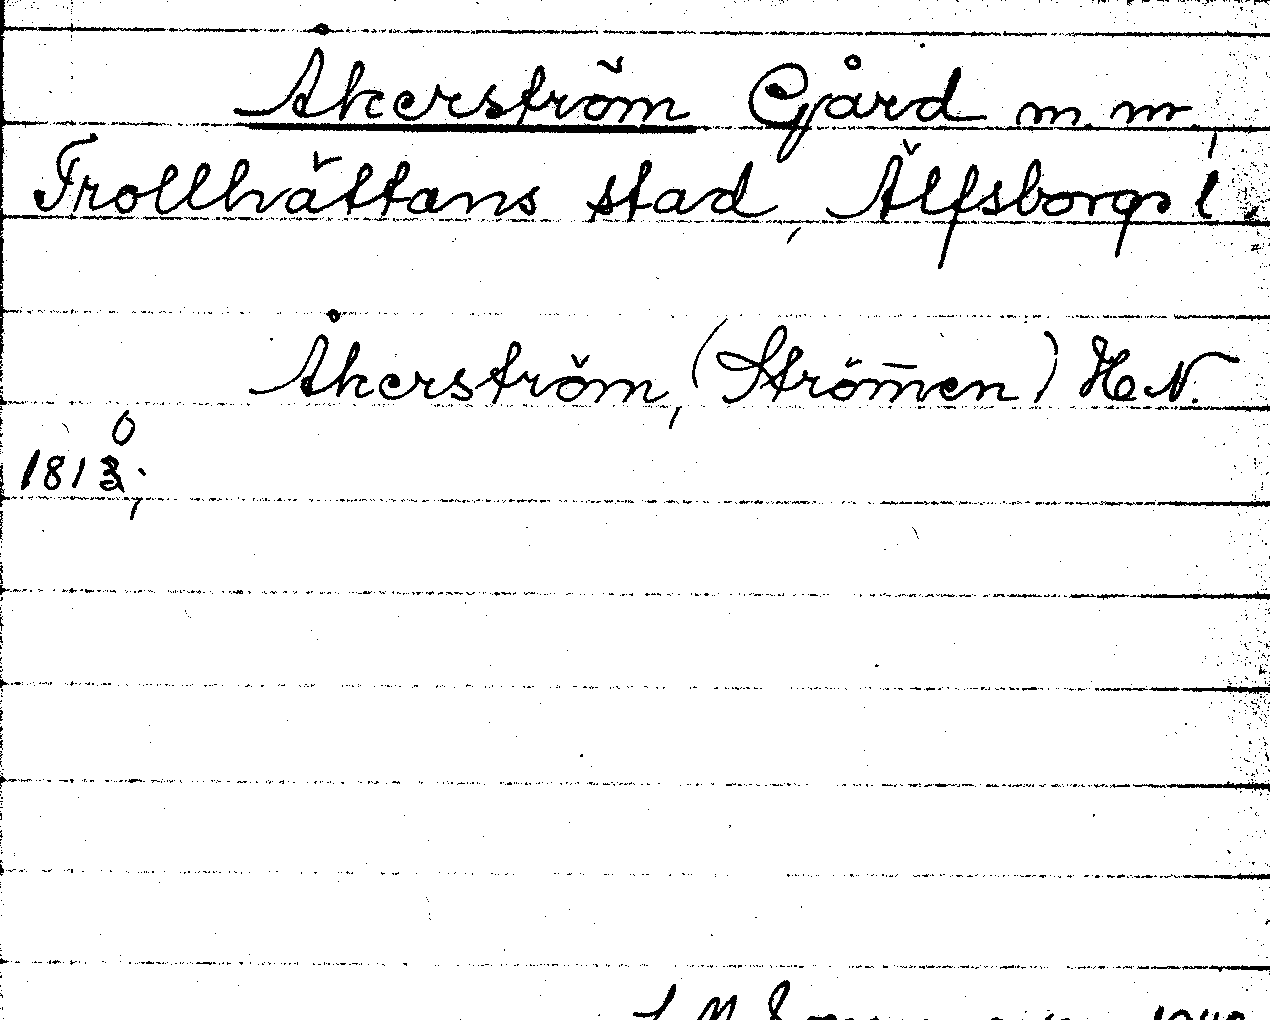 Åkerström Gård m. m.,
Trollhättans stad, Älfsborgs l.
Åkerström, (Strömmen) H. N.
0
1813;